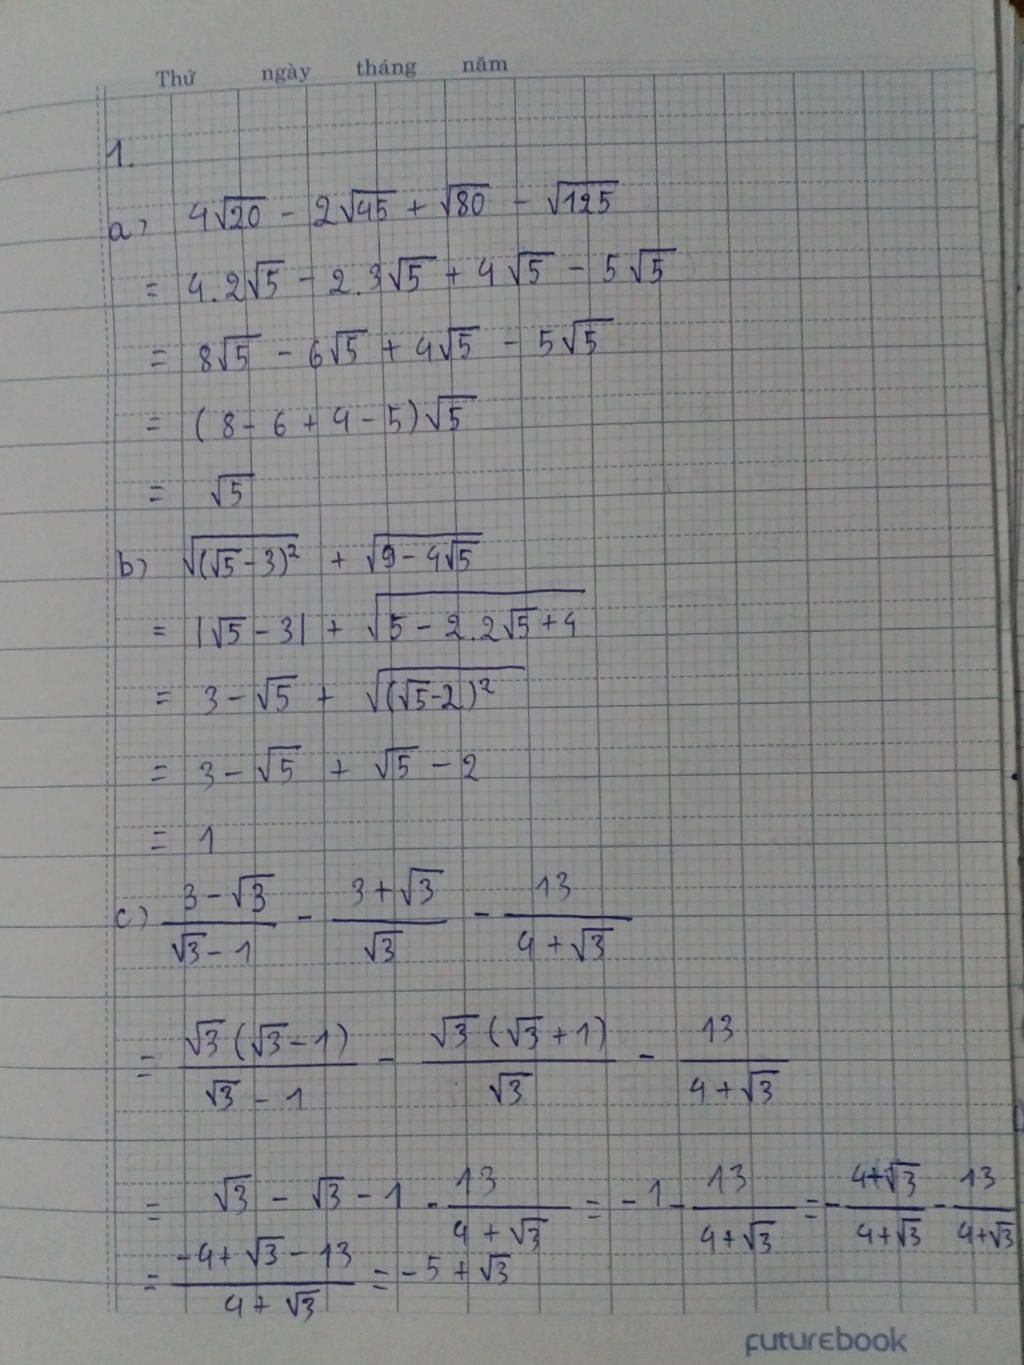 Thứ ngày tháng năm
1.
a) 4√20 - 2√45 + √80 - √125
= 4.2√5 - 2.3√5 + 4√5 - 5√5
= 8√5 - 6√5 + 4√5 - 5√5
= (8 - 6 + 4 - 5)√5
= √5
b) √((√5 - 3)²) + √(9 - 4√5)
= |√5 - 3| + √(5 - 2.2√5 + 4)
= 3 - √5 + √((√5 - 2)²)
= 3 - √5 + √5 - 2
= 1
c) (3 - √3)/(√3 - 1) - (3 + √3)/√3 - 13/(4 + √3)
= √3(√3 - 1)/(√3 - 1) - √3(√3 + 1)/√3 - 13/(4 + √3)
= √3 - √3 - 1 - 13/(4 + √3) = -1 - 13/(4 + √3) = -(4 + √3)/(4 + √3) - 13/(4 + √3)
= (-4 + √3 - 13)/(4 + √3) = -5 + √3
futurebook